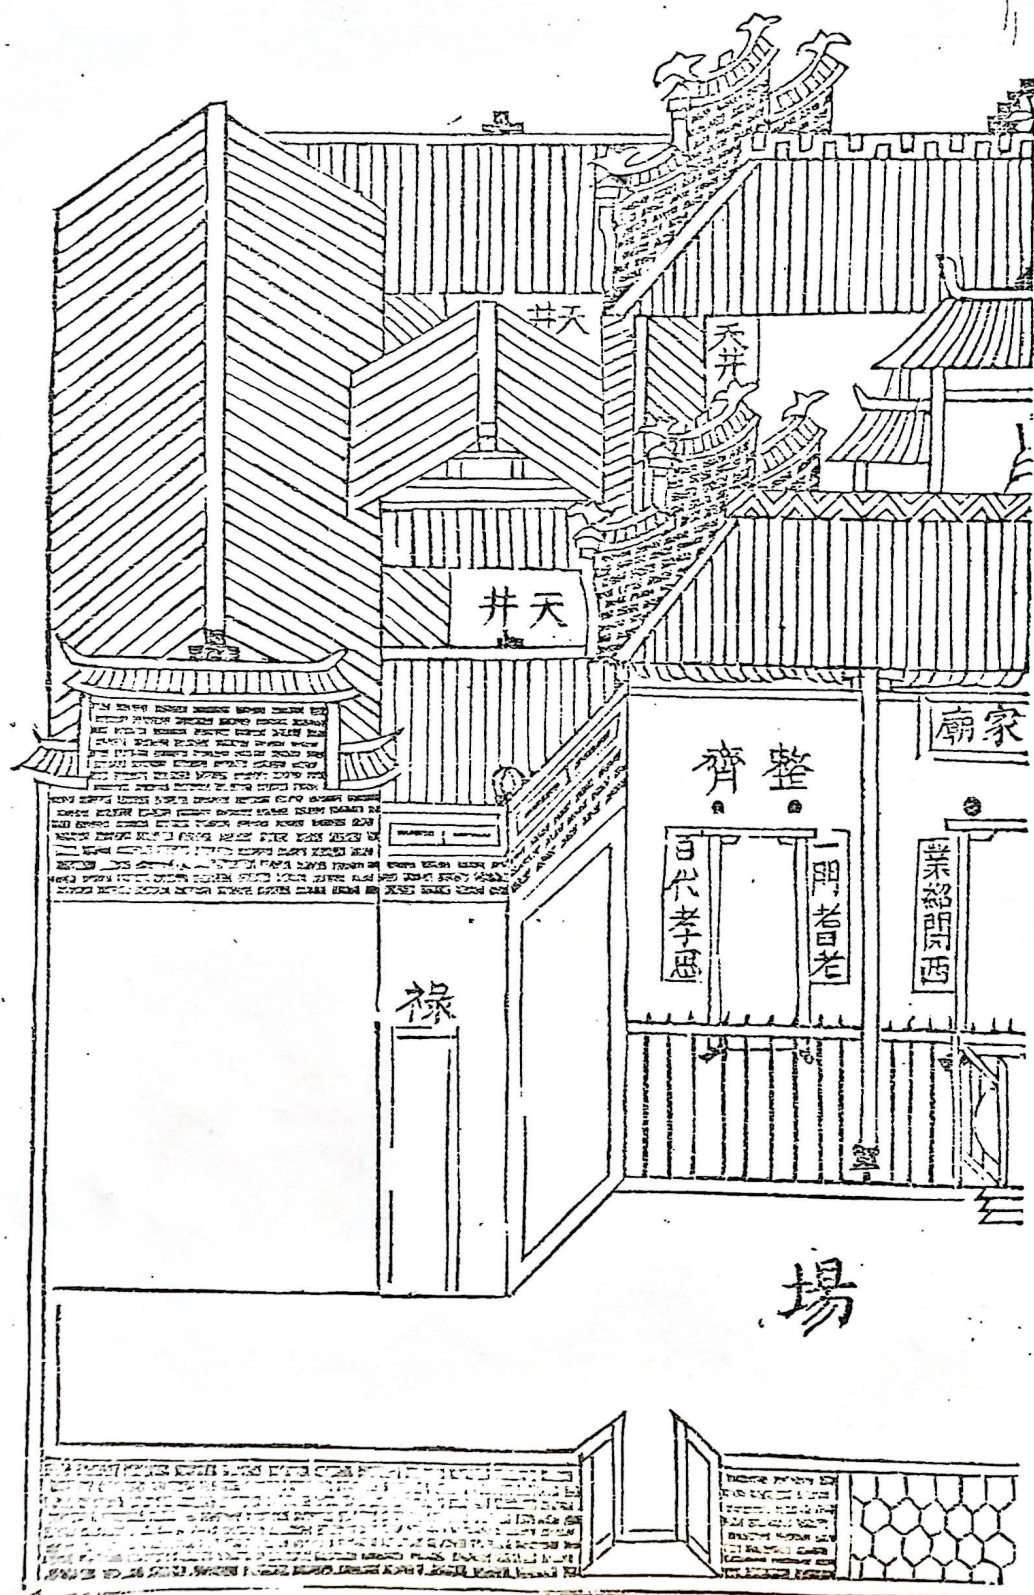 天井
天井
天井
家廟
整齊
業紹関西
一門耆老
百代孝思
祿
場